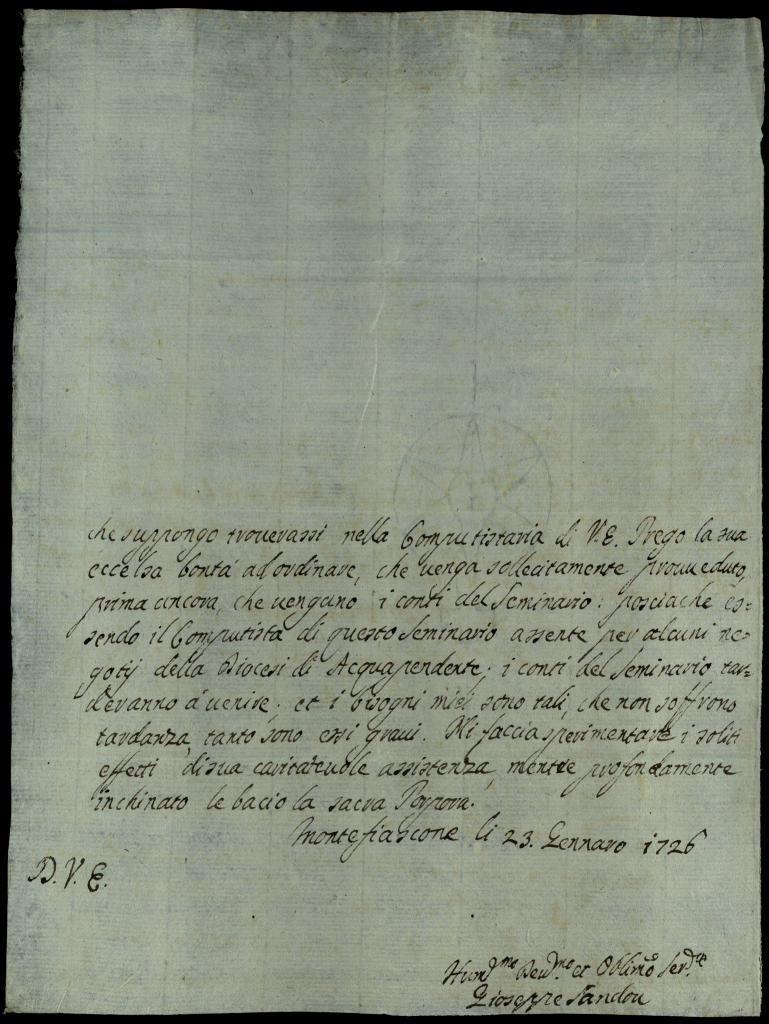 che suppongo trouerassi nella Computistaria di V.E. Prego la sua
eccelsa bontà ad ordinare, che uenga sollecitamente proueduto,
prima ancora, che uengano i conti del Seminario: posciache es=
sendo il Computista di questo Seminario assente per alcuni ne=
gotij della Diocesi di Acquapendente; i conti del Seminario tar=
deranno à uenire; et i bisogni miei sono tali, che non soffrono
tardanza, tanto sono essi graui. Mi faccia sperimentare i soliti
effetti di sua caritateuole assistenza, mentre profondamente
inchinato le bacio la sacra Porpora.
Montefiascone li 23. Gennaro 1726
D. V. E.
Hum.mo Deu.mo et Oblimo Ser.re
Gioseppe